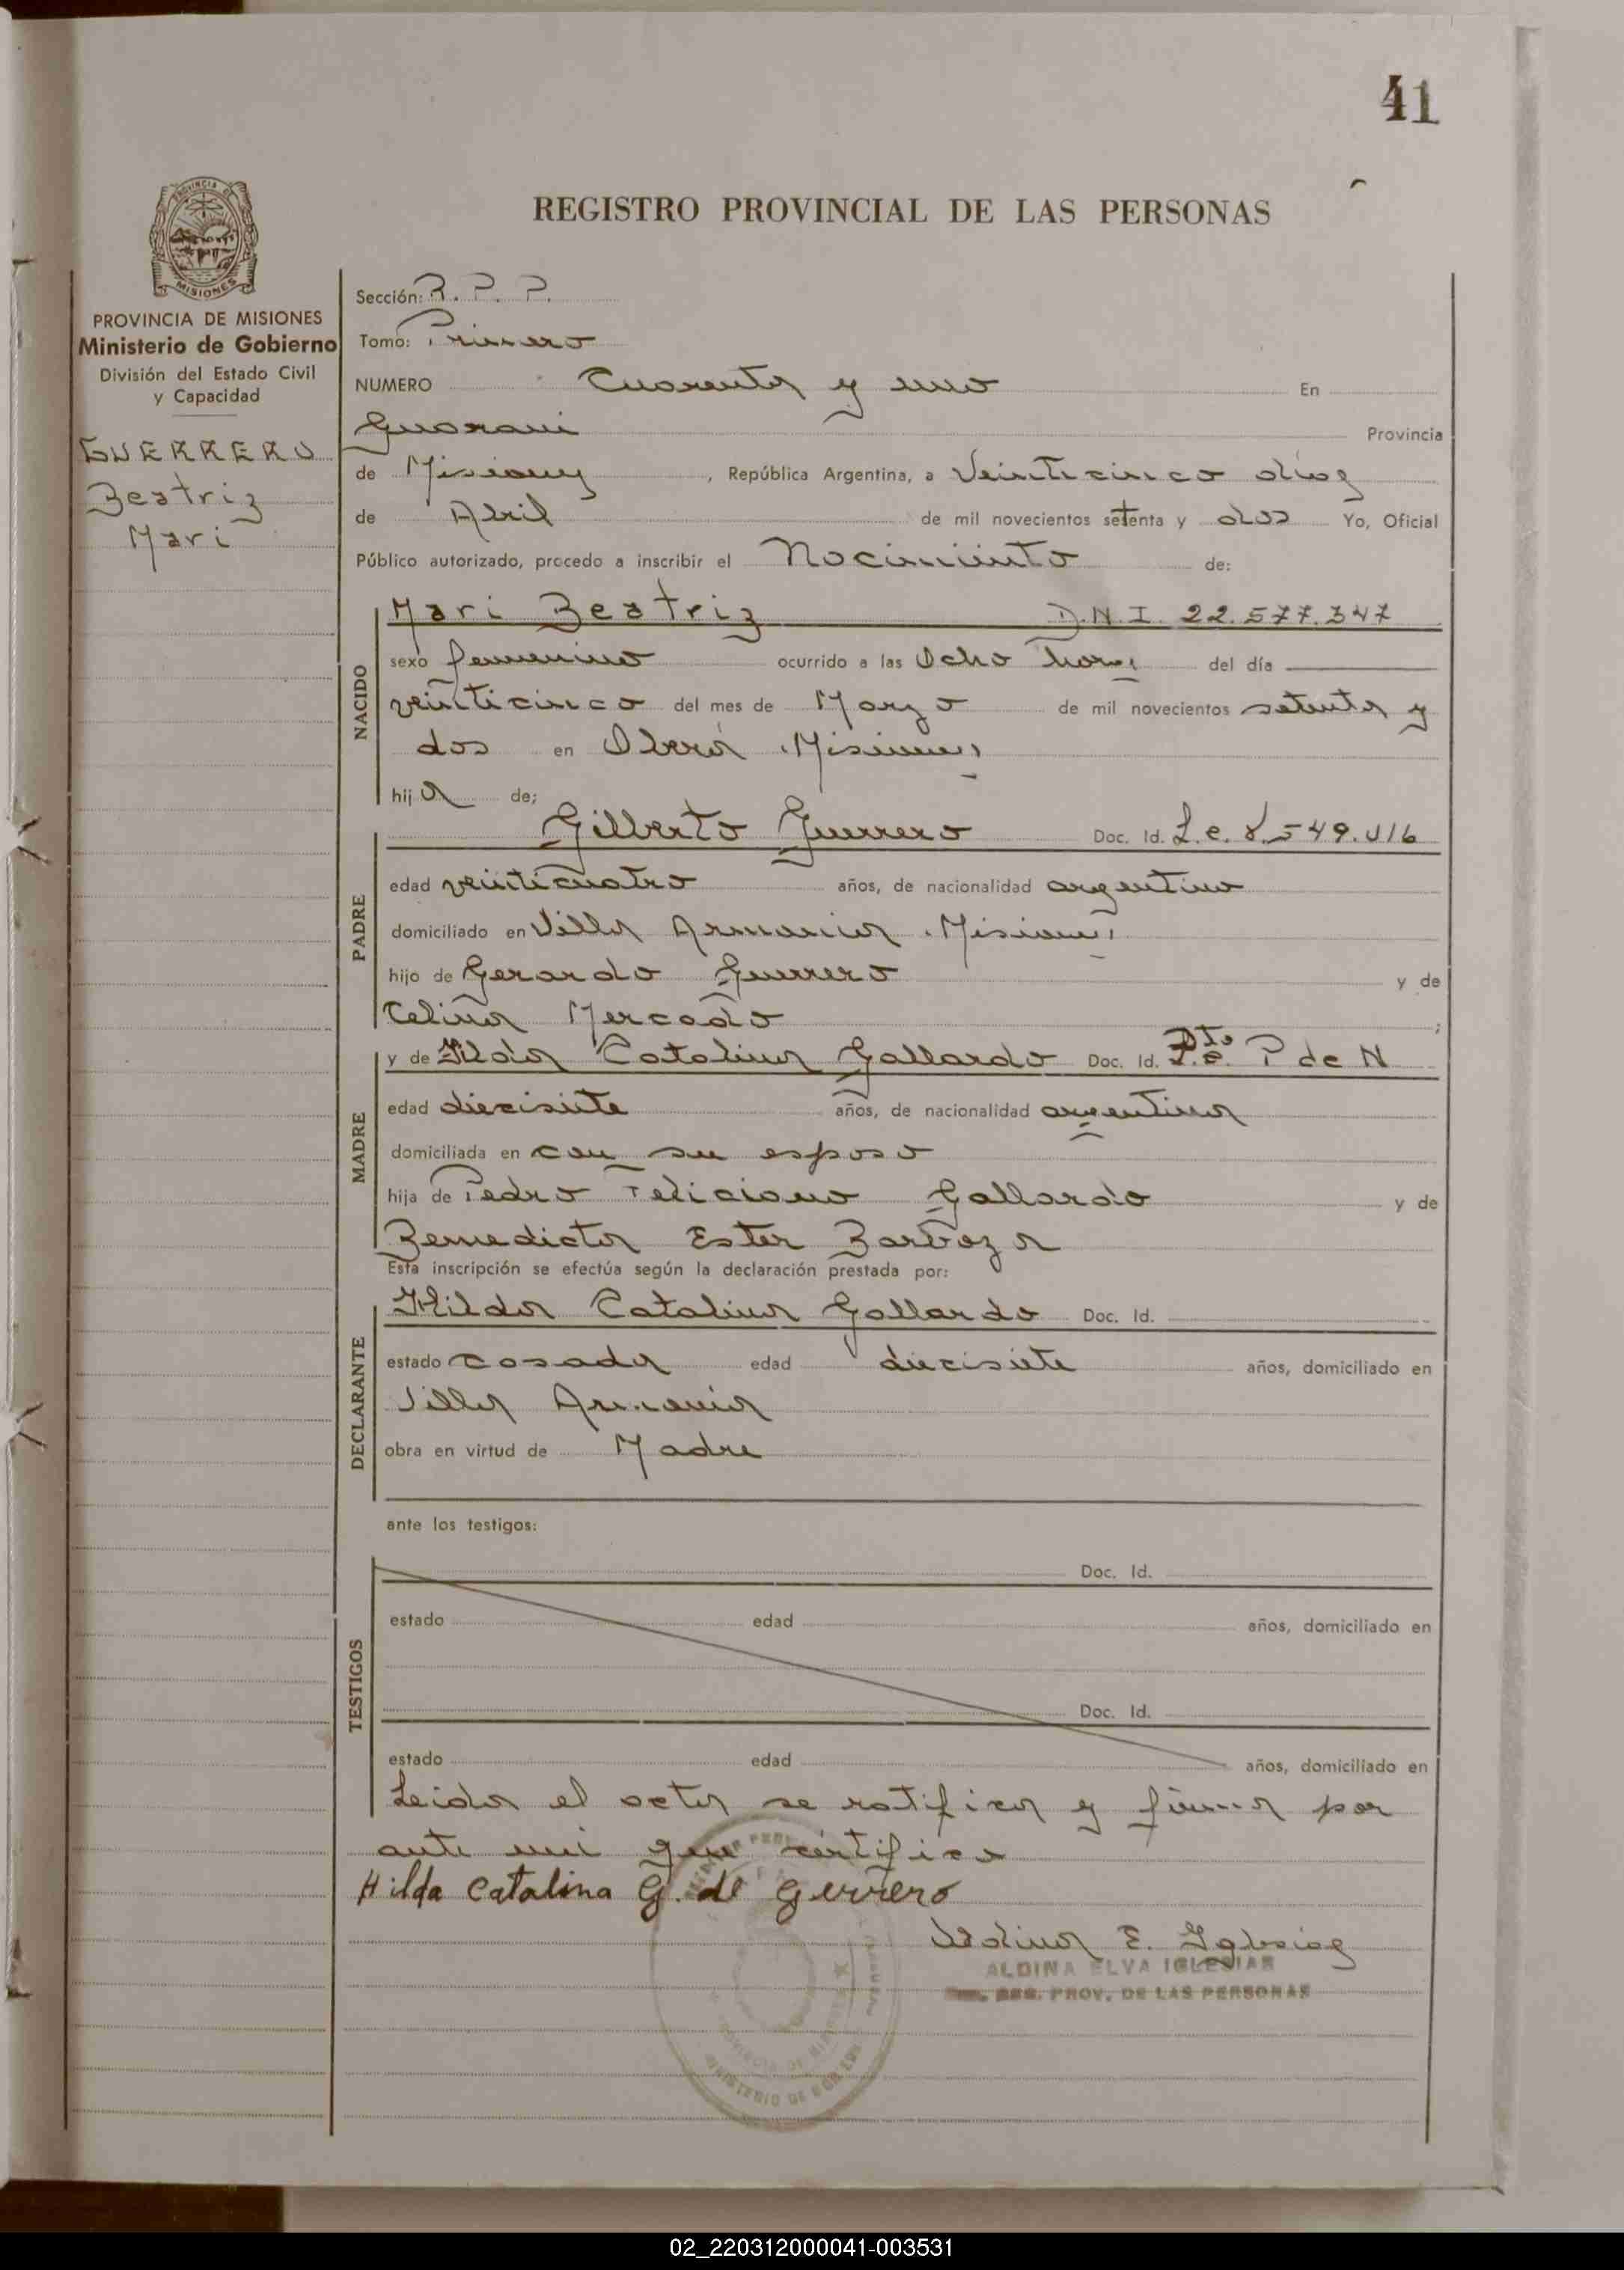 41
REGISTRO PROVINCIAL DE LAS PERSONAS
PROVINCIA DE MISIONES
MISIONES
PROVINCIA DE MISIONES
Ministerio de Gobierno
División del Estado Civil
y Capacidad
GUERRERO
Beatriz
Mari
Sección: R. P. P.
Tomo: Primero
NUMERO Cuarenta y uno En
Guarani Provincia
de Misiones, República Argentina, a Veinticinco días
de Abril de mil novecientos setenta y dos Yo, Oficial
Público autorizado, procedo a inscribir el Nacimiento de:
NACIDO
Mari Beatriz D.N.I. 22.577.347
sexo femenino ocurrido a las Ocho horas del día
veinticinco del mes de Marzo de mil novecientos setenta y
dos en Oberá Misiones
hija de;
PADRE
Gilberto Guerrero Doc. Id. L.e. 8.549.016
edad veinticuatro años, de nacionalidad argentino
domiciliado en Villa Armonia Misiones
hijo de Gerardo Guerrero y de
Celina Mercado ;
MADRE
y de Hilda Catalina Gallardo Doc. Id. P de N
edad diecisiete años, de nacionalidad argentina
domiciliada en con su esposo
hija de Pedro Feliciano Gallardo y de
Benedicta Ester Barboza
Esta inscripción se efectúa según la declaración prestada por:
DECLARANTE
Hilda Catalina Gallardo Doc. Id.
estado casada edad diecisiete años, domiciliado en
Villa Armonia
obra en virtud de Madre
ante los testigos:
TESTIGOS
Doc. Id.
estado edad años, domiciliado en
Doc. Id.
estado edad años, domiciliado en
Leida el acta se ratifica y firma por
ante mi que certifico
Hilda Catalina G. de Gerrero
Aldina E. Iglesias
ALDINA ELVA IGLESIAS
REG. PROV. DE LAS PERSONAS
MINISTERIO DE GOBIERNO
02_220312000041-003531